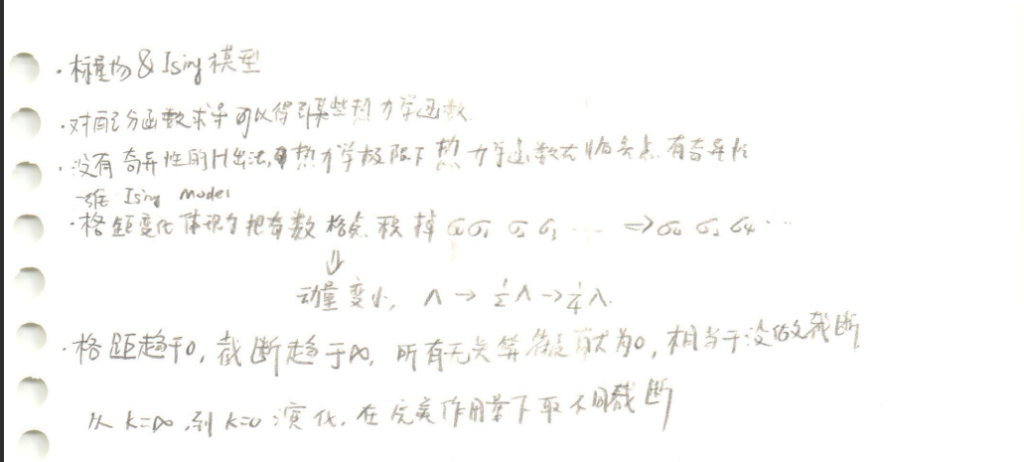 ·标量场 & Ising 模型
·对配分函数求导可以得到某些热力学函数
·没有奇异性的H出法,热力学极限下热力学函数在临界点有奇异性
一维 Ising model
·格距变化体现为把奇数格点积掉 σ₀σ₁ σ₂ σ₃ ··· ⇒ σ₀ σ₂ σ₄ ···
⇓
动量变小, Λ → ½Λ → ¼Λ.
·格距趋于0, 截断趋于∞, 所有无关算符贡献为0, 相当于没做截断
从 k=∞ 到 k=0 演化, 在完美作用量下取不同截断